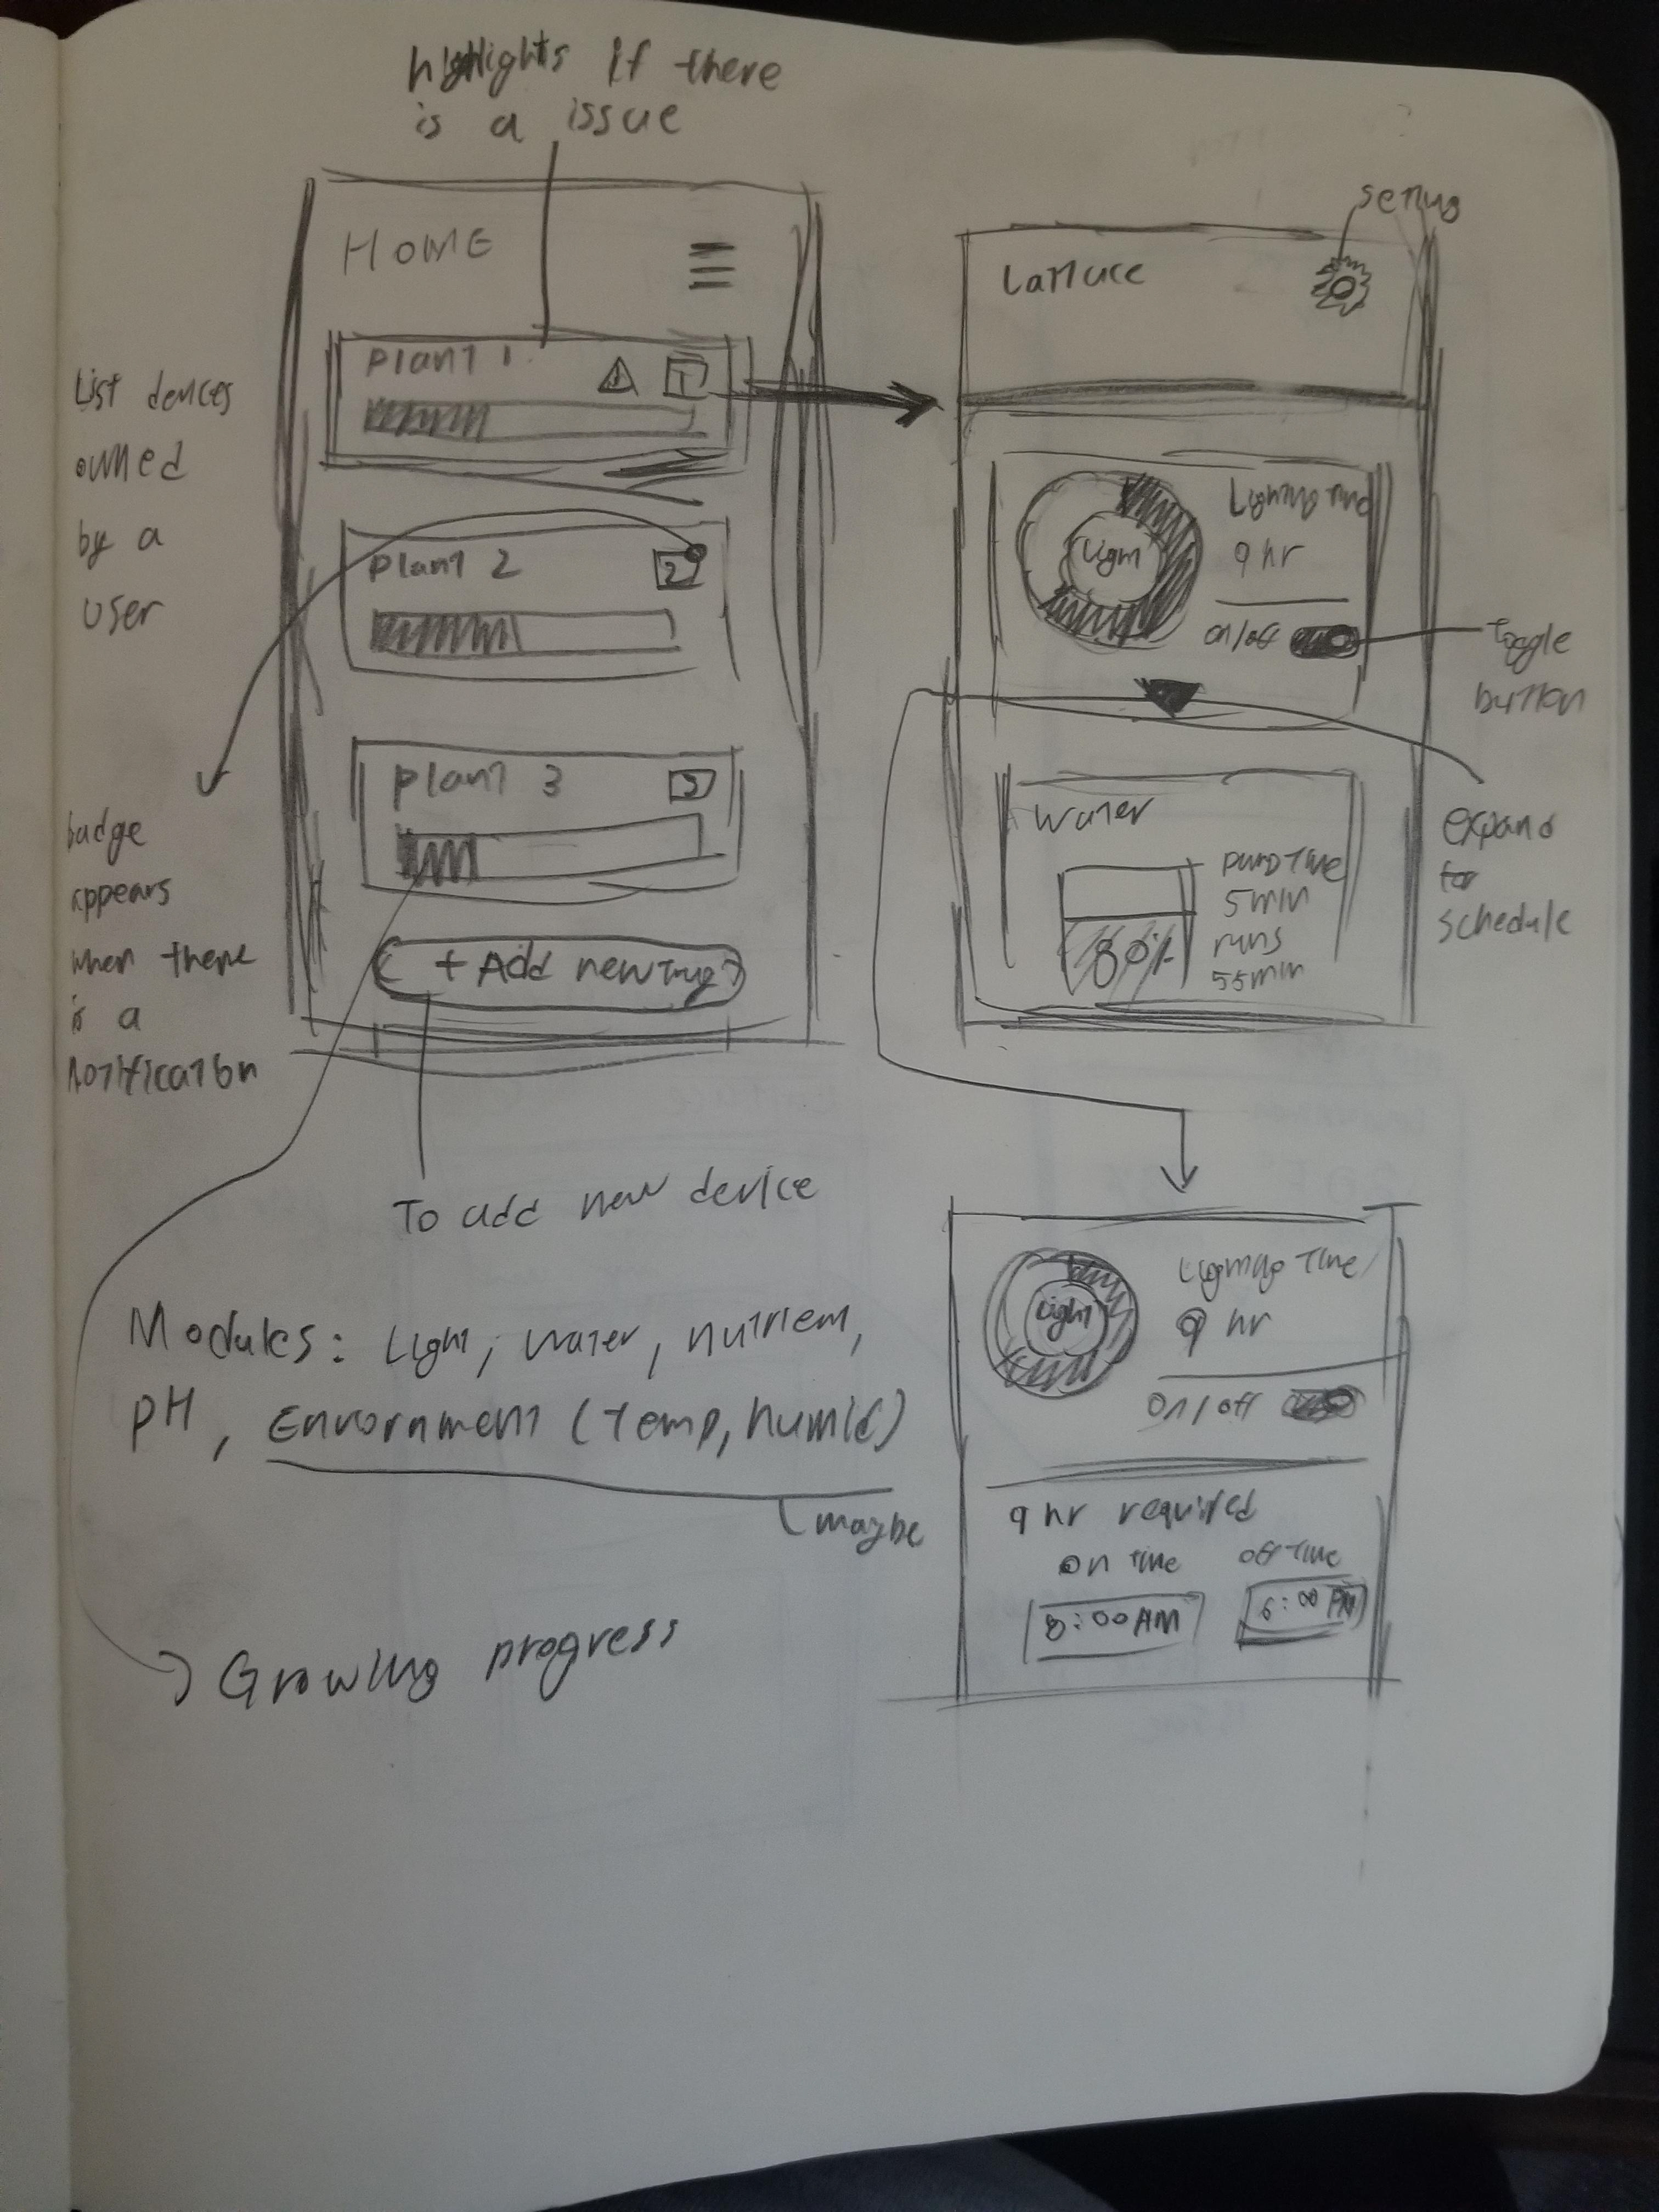 highlights if there
is a issue
HOME
Plant 1
1
List devices
owned
by a
user
Plant 2
2
Plant 3
3
+ Add new
badge
appears
when there
is a
notification
To add new device
Modules: Light, water, nutrient,
pH, Envornment (temp, humid)
maybe
Growing progress
setting
Lattuce
Light
Lighting time
9 hr
on/off
toggle
button
expand
for
schedule
water
pump time
5min
runs
55min
80%
Light
Lighting time
9 hr
on/off
9 hr required
on time
off time
8:00AM
6:00 PM